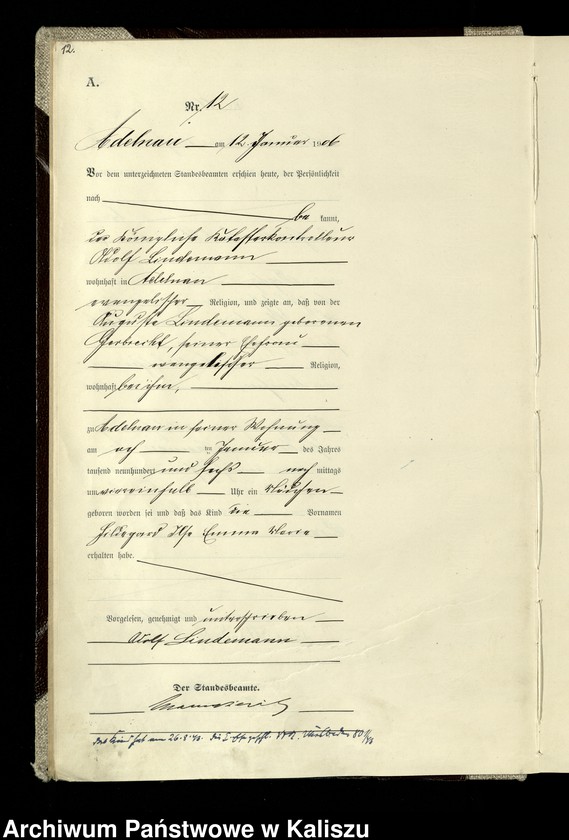 12.
A.
Nr. 12
Adelnau am 12 Januar 1906
Vor dem unterzeichneten Standesbeamten erschien heute, der Persönlichkeit
nach
be kannt,
der Königliche Katasterkontrolleur
Adolf Lindemann
wohnhaft in Adelnau
evangelischer Religion, und zeigte an, daß von der
Auguste Lindemann geborenen
Gerbrecht, seiner Ehefrau
evangelischer Religion,
wohnhaft bei ihm,
zu Adelnau in seiner Wohnung
am ten Januar des Jahres
tausend neunhundert und sechs nach mittags
um viereinhalb Uhr ein Mädchen
geboren worden sei und daß das Kind die Vornamen
Hildegard Ilse Emma Maria
erhalten habe.
Vorgelesen, genehmigt und unterschrieben
Adolf Lindemann
Der Standesbeamte.
das Kind hat am 26.8.43. die I.
Archiwum Państwowe w Kaliszu